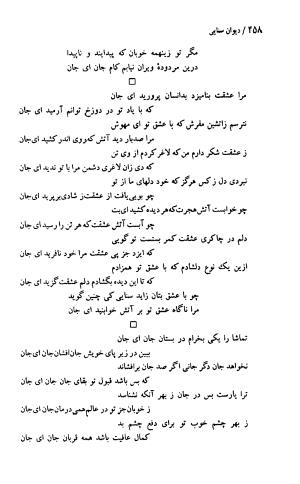 ۴۵۸ / دیوان سنایی
مگر تو زینهمه خوبان که پیدایند و ناپیدا
درین مردودهٔ ویران نیابم کام جان ای جان
مرا عشقت بنامیزد بدانسان پرورید ای جان
که با یاد تو در دوزخ توانم آرمید ای جان
نترسم زآتشین مفرش که با عشق تو ای مهوش
مرا صدبار دید آتش که روی اندر کشید ای جان
ز عشقت شکر دارم من که لاغر کردم از وی تن
که دی زان لاغری دشمن مرا با تو ندید ای جان
نبردی دل ز کس هرگز که خود دلهای ما از تو
چو بویی یافت از عشقت ز شادی برپرید ای جان
چو خوابست آتش هجرت که هر دیده کشید ای بت
چو آبست آتش عشقت که هر تن را رسید ای جان
دلم در چاکری عشقت کمر بستست تو گویی
که ایزد جز پی عشقت مرا خود نافرید ای جان
ازین یک نوع دلشادم که با عشق تو همزادم
که تا این دیده بگشادم دلم عشقت گزید ای جان
چو با عشق بتان زاید سنایی کی چنین گوید
مرا ناگاه عشق تو بر آتش خوابنید ای جان
تماشا را یکی بخرام در بستان جان ای جان
ببین در زیر پای خویش جان‌افشان جان ای جان
نخواهد جان دگر جانی اگر صد جان برافشاند
که بس باشد قبول تو بقای جان جان ای جان
ترا یارست بس در جان ز بهر آنکه نشناسد
ز خوبان جز تو در عالم همی درمان جان ای جان
ز بهر چشم خوب تو برای دفع چشم بد
کمال عافیت باشد همه قربان جان ای جان